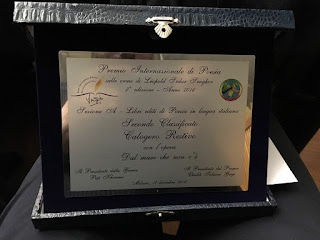 Premio Internazionale di Poesia
nel nome di Léopold Sédar Senghor
2ª edizione - Anno 2016
Sezione A - Libri editi di Poesia in lingua italiana
Secondo Classificato
Calogero Restivo
con l'opera
Dal mare che non
Il Presidente della Giuria
Il Presidente del Premio
Milano, dicembre 2016